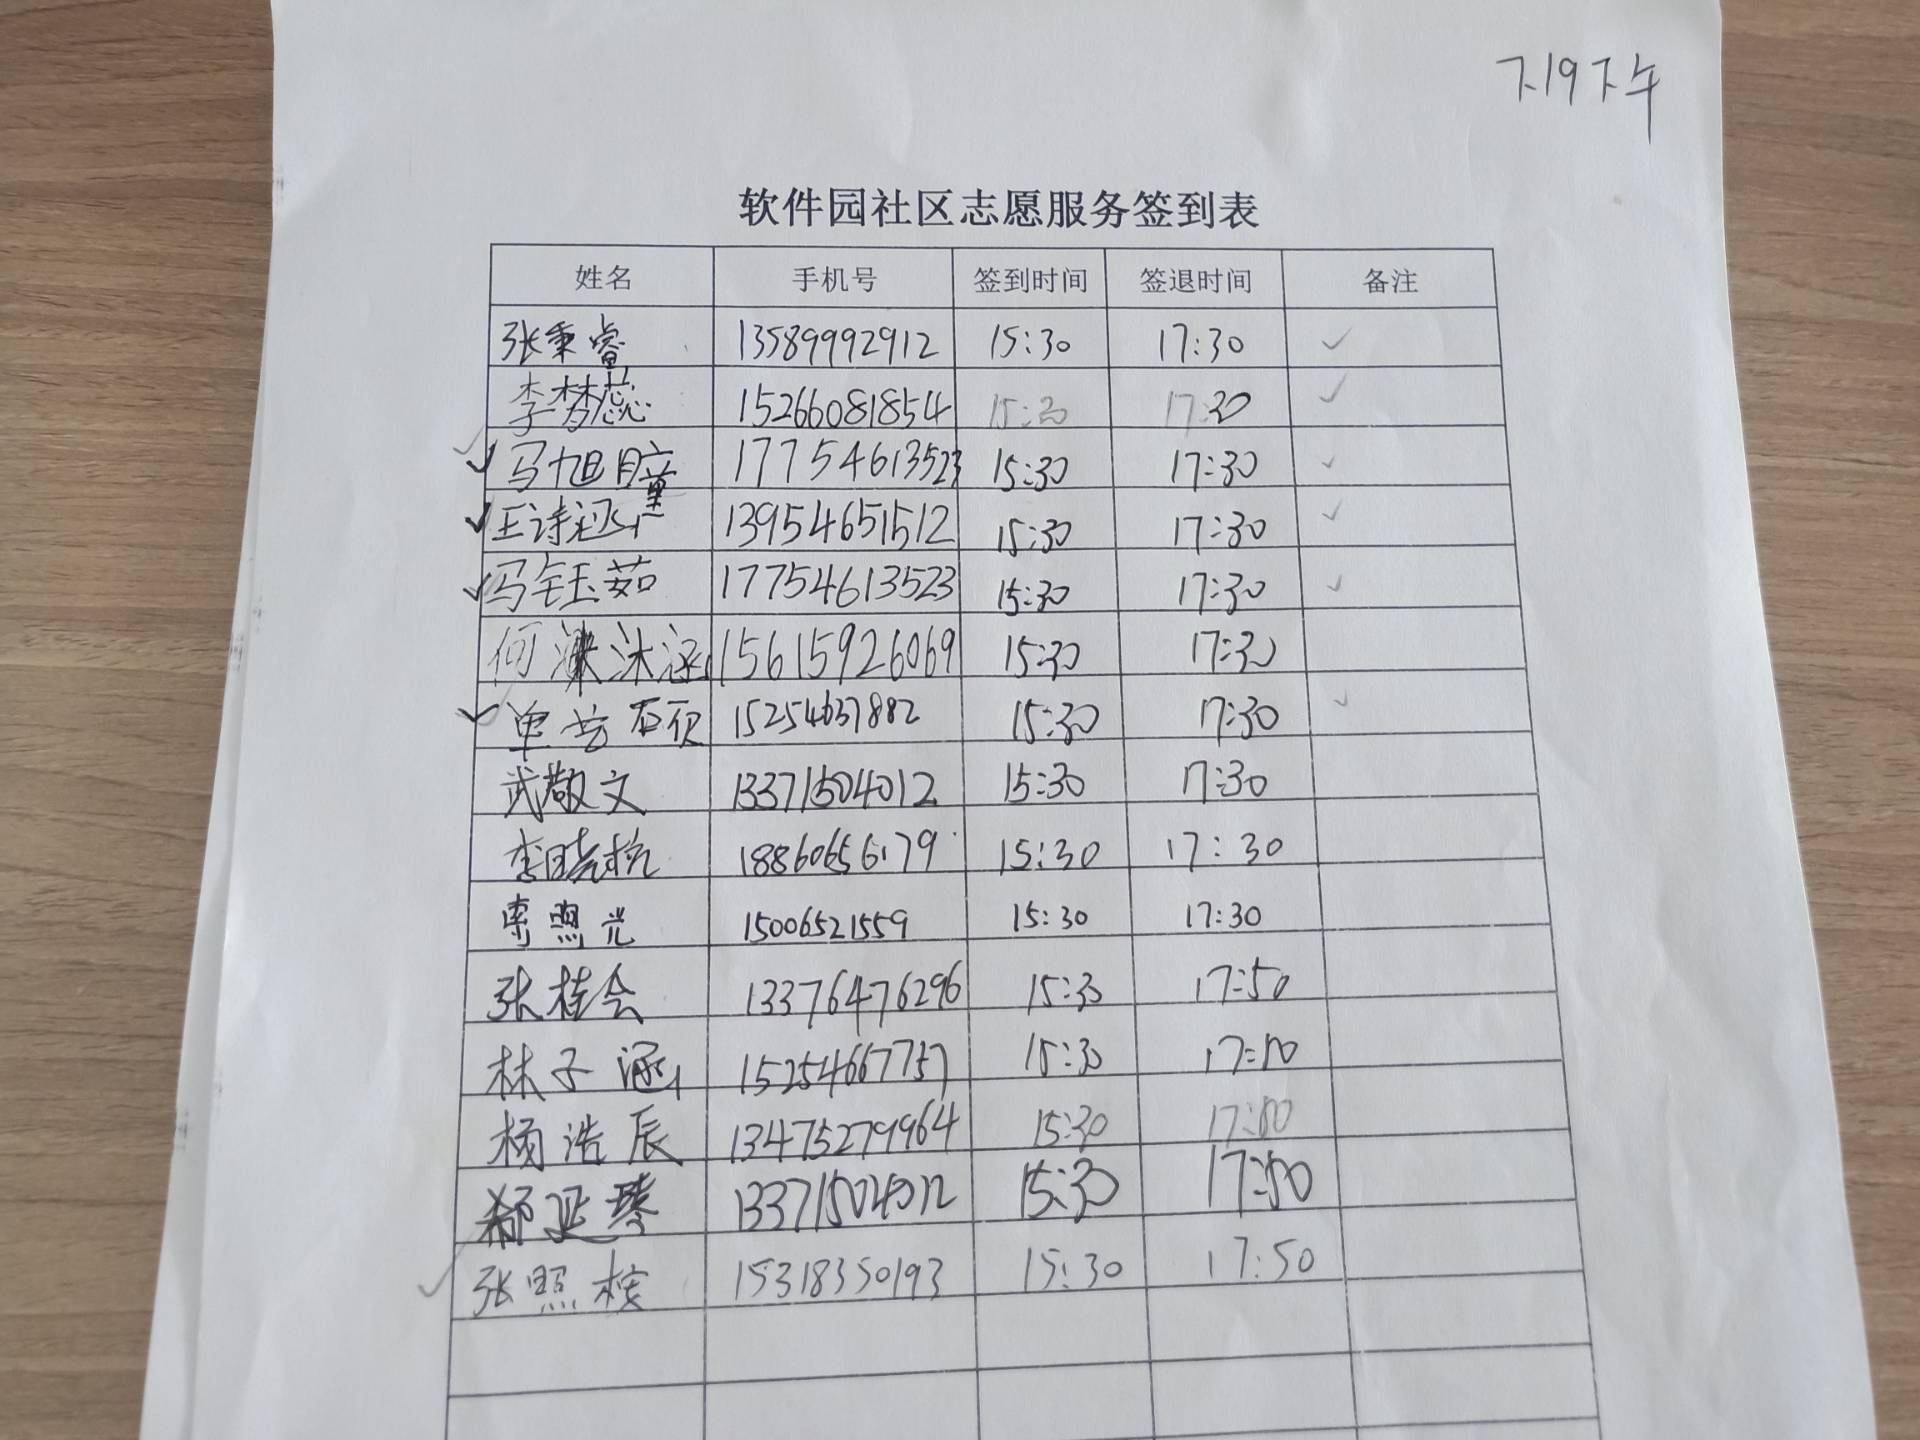 7.19下午
软件园社区志愿服务签到表
姓名 手机号 签到时间 签退时间 备注
张秉睿 13589992912 15:30 17:30 ✓
李梦蕊 15266081854 15:30 17:30 ✓
✓ 马旭瞳 17754613523 15:30 17:30 ✓
✓ 王诗涵 13954651512 15:30 17:30 ✓
✓ 马钰茹 17754613523 15:30 17:30 ✓
何沐涵 15615926069 15:30 17:30
✓ 单芸硕 15254637882 15:30 17:30 ✓
武敬文 13371504012 15:30 17:30
李晓杭 18860656179 15:30 17:30
照光 15006521559 15:30 17:30
张桂会 13376476296 15:30 17:50
林子涵 15254667757 15:30 17:50
杨浩辰 13475279964 15:30 17:50
延琴 13371504012 15:30 17:50
✓ 张照 15318350193 15:30 17:50